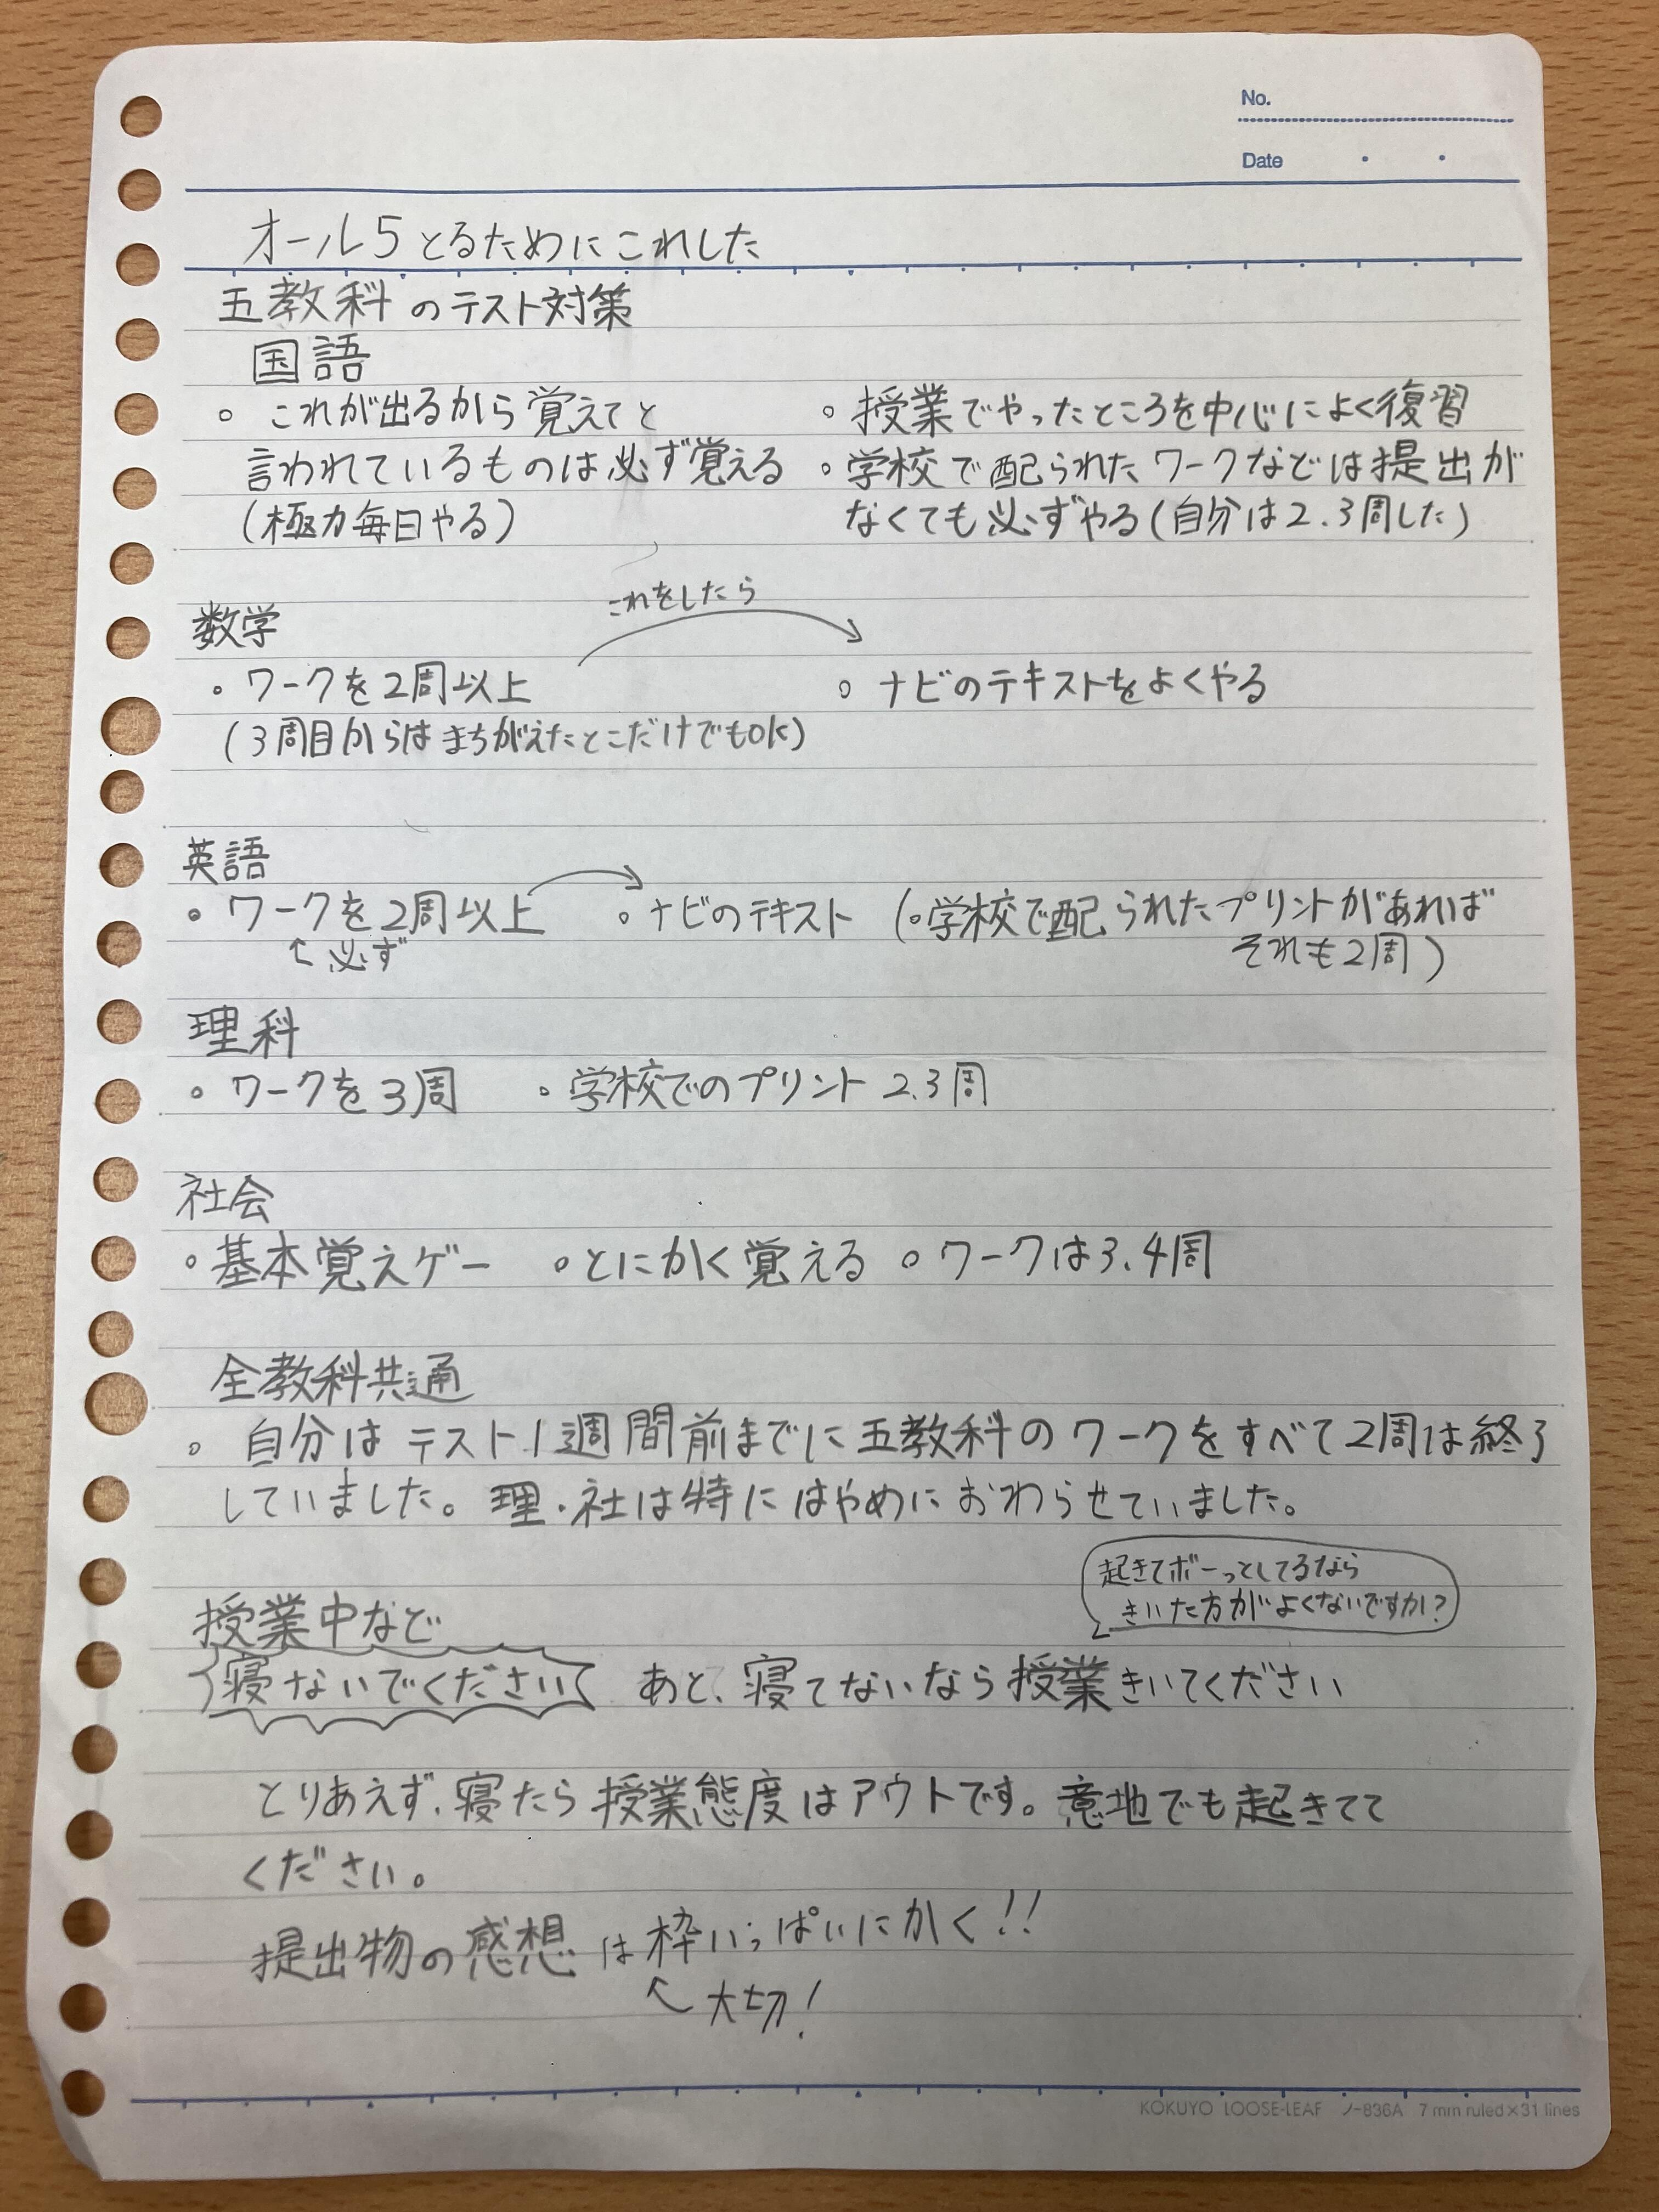 No.
Date
オール5とるためにこれした
五教科のテスト対策
国語
。これが出るから覚えてと
言われているものは必ず覚える
(極力毎日やる)
。授業でやったところを中心によく復習
。学校で配られたワークなどは提出が
なくても必ずやる(自分は2.3周した)
数学
これをしたら
。ワークを2周以上
(3周目からはまちがえたとこだけでもOK)
。ナビのテキストをよくやる
英語
。ワークを2周以上 。ナビのテキスト (。学校で配られたプリントがあれば
↑必ず
それも2周)
理科
。ワークを3周 。学校でのプリント 2.3周
社会
。基本覚えゲー 。とにかく覚える 。ワークは3.4周
全教科共通
。自分はテスト1週間前までに五教科のワークをすべて2周は終了
していました。理・社は特にはやめにおわらせていました。
起きてボーっとしてるなら
きいた方がよくないですか?
授業中など
寝ないでください あと、寝てないなら授業きいてください
とりあえず、寝たら授業態度はアウトです。意地でも起きてて
ください。
提出物の感想は枠いっぱいにかく!!
↑大切!
KOKUYO LOOSE-LEAF ノ-836A 7 mm ruled×31 lines